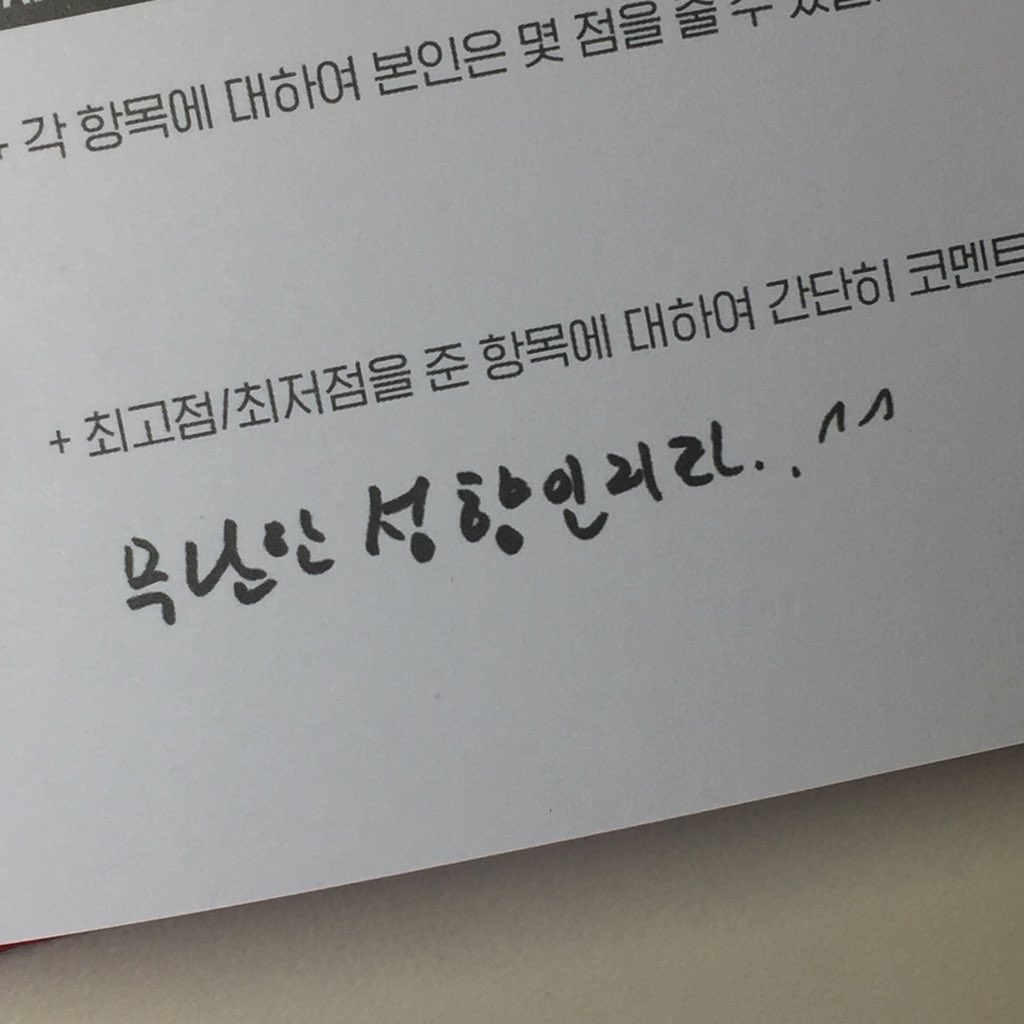 각 항목에 대하여 본인은 몇 점을 줄 수
+ 최고점/최저점을 준 항목에 대하여 간단히 코멘트
무난안 성향인지라.. ^^